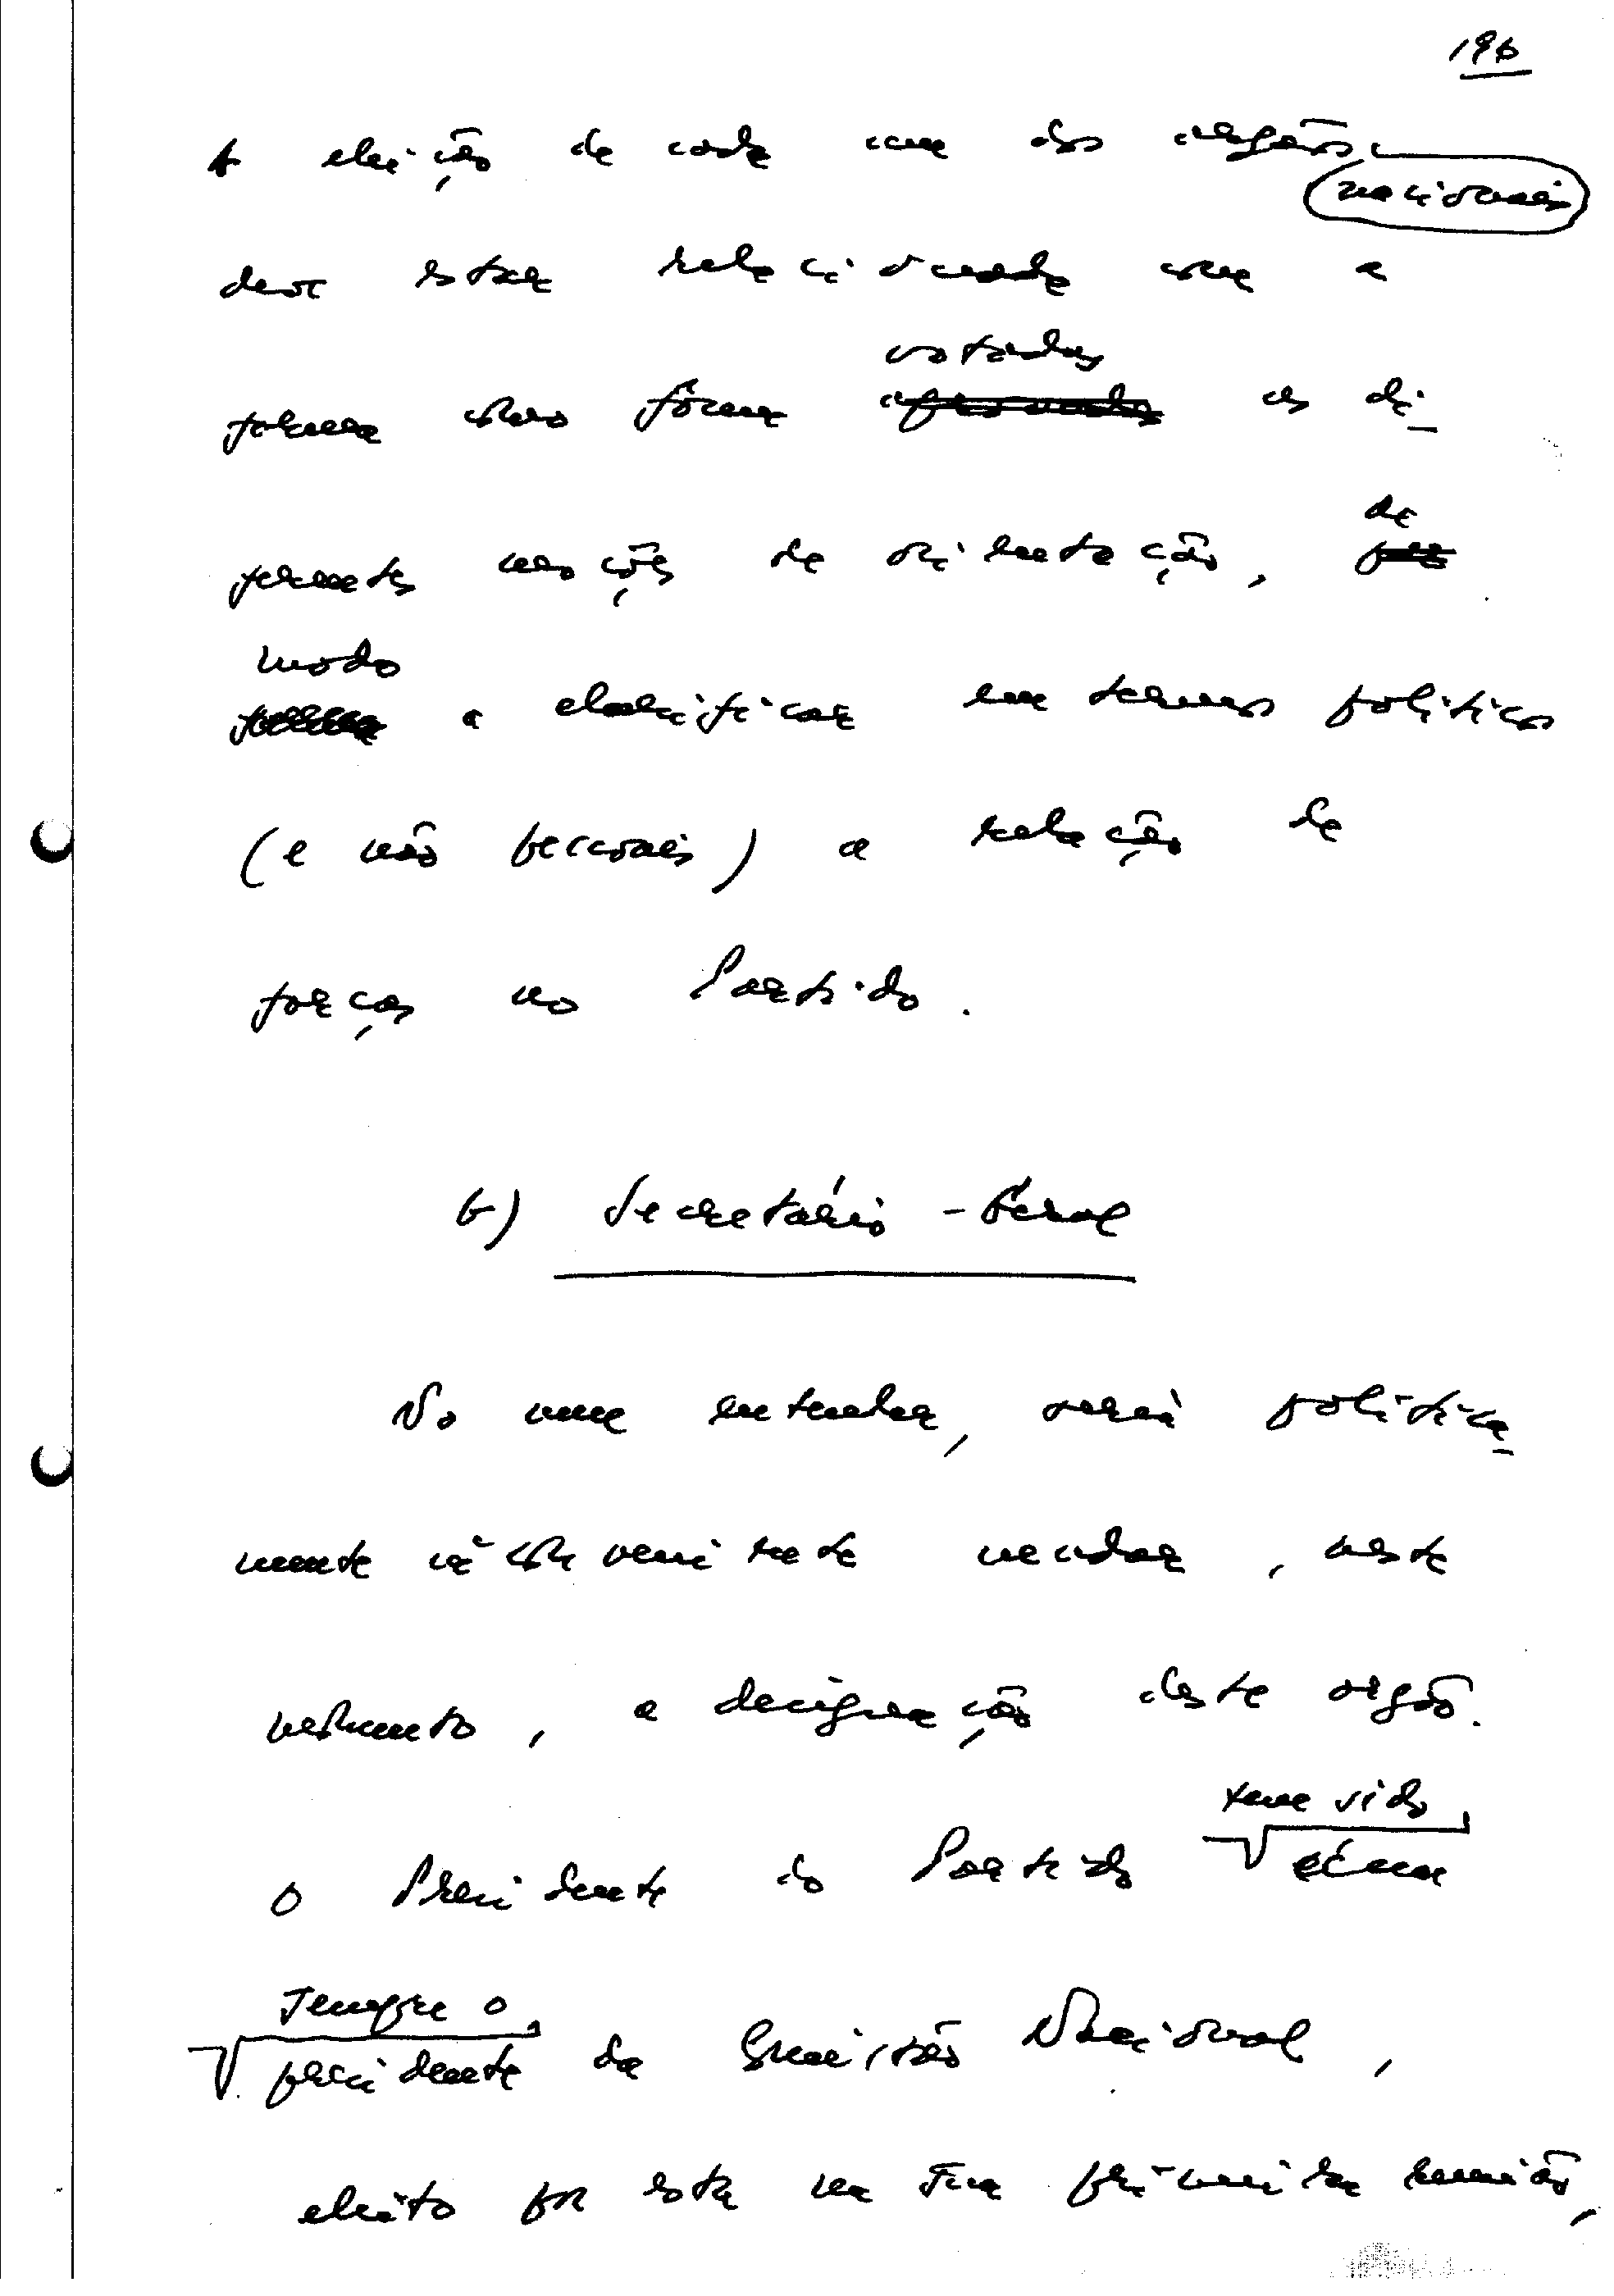 196
A eleição de cada um dos orgãos
nacionais
deve estar relacionada com a
votadas
forma como fôrem aprovadas as di-
ferentes moções de orientação, de
por
modo
forma a clarificar em termos políticos
(e não pessoais) a relação de
forças no Partido.
b) Secretário-Geral
No meu entender, seria política-
mente inconveniente mudar, neste
momento, a designação deste orgão.
tem sido
O Presidente do Partido é um
sempre o
presidente da Comissão Nacional,
eleito por esta na sua primeira reunião,